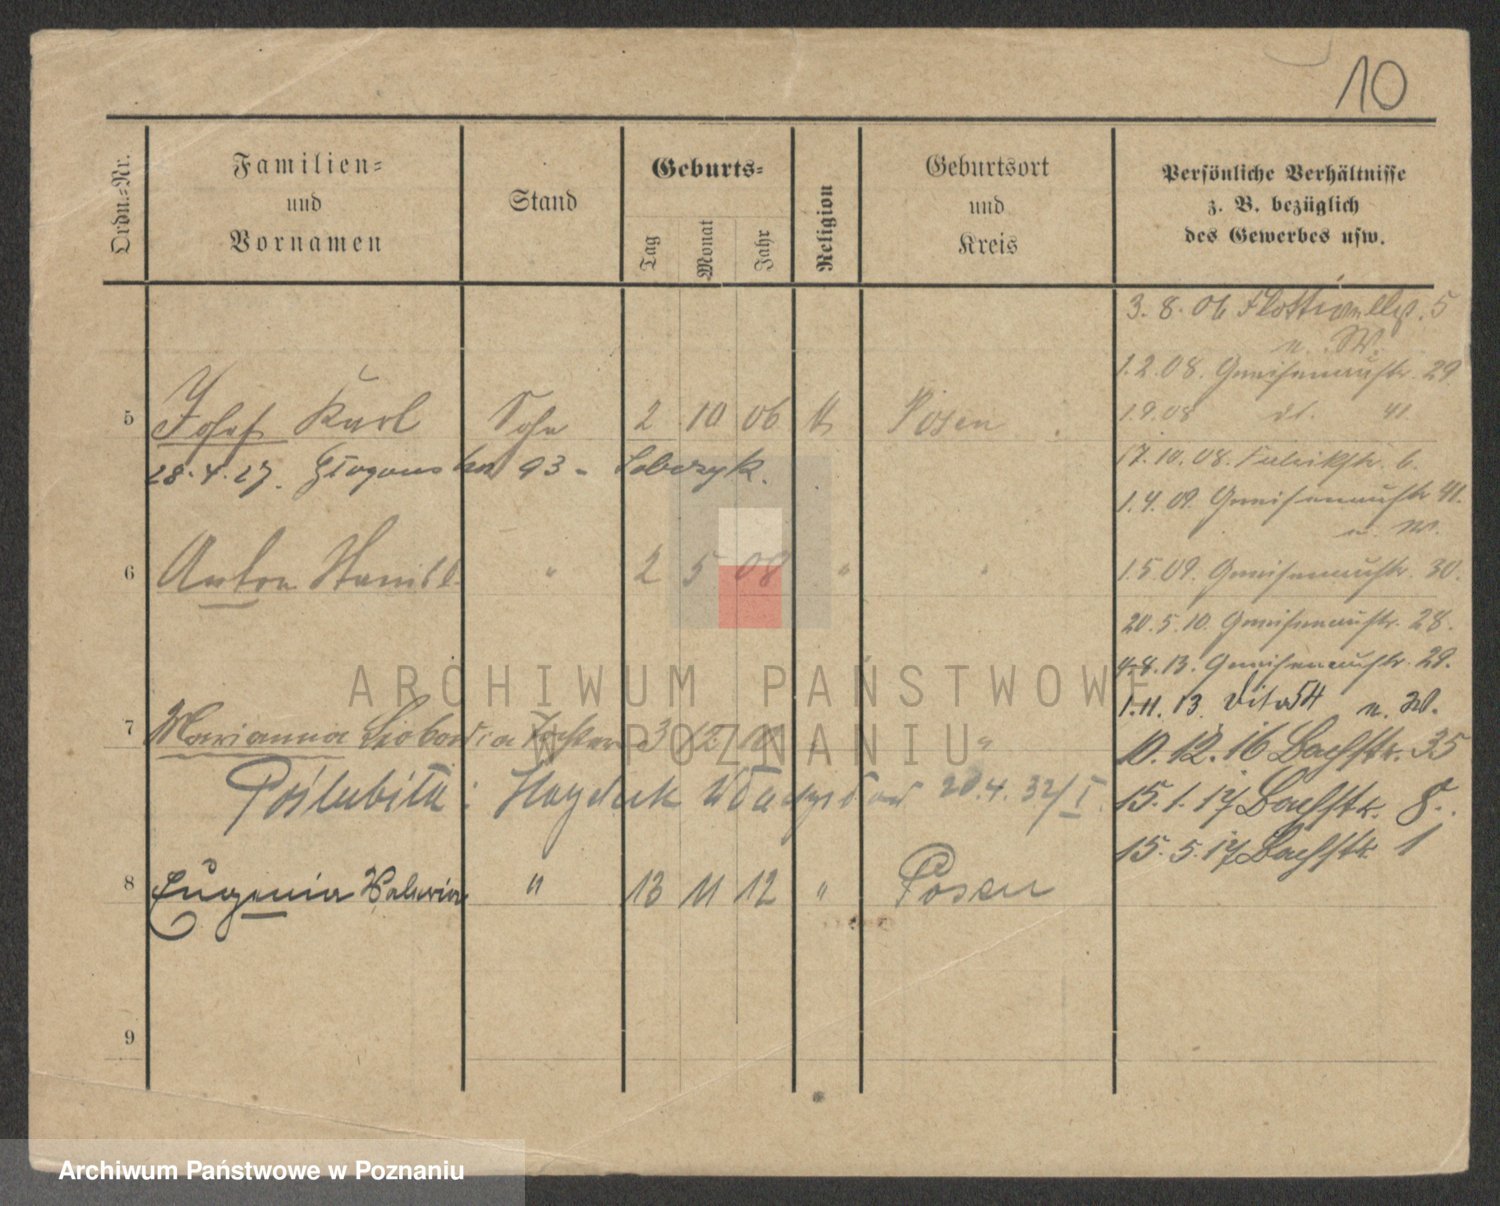 10
Ordn.-Nr.
Familien-
und
Vornamen
Stand
Geburts-
Tag
Monat
Jahr
Religion
Geburtsort
und
Kreis
Persönliche Verhältnisse
z. B. bezüglich
des Gewerbes usw.
3. 8. 06 5
u. W.
1.2.08. Gneisenaustr. 29
1.9.08 dt. 41
17.10.08. Fabrikstr. 6.
1.4.09. Gneisenaustr 41.
u. W.
1.5.09. Gneisenaustr. 30.
20.5.10. Gneisenaustr. 28.
4.8.13. Gneisenaustr. 29.
1.11.13. u. W.
10.12.16 Bachstr. 35
15.1.17 Bachstr. 8.
15.5.17 Bachstr. 1
5 Josef Karl Sohn 2 10 06 k Posen
28.4.27. 93 - Sobczyk.
6 Anton " 2 5 08 " "
7 Marianna Tochter 3 12 " "
Poślubiła: Hayduk 20.4.32/I.
8 Eugenia " 13 11 12 " Posen
9
ARCHIWUM PAŃSTWOWE
W POZNANIU
Archiwum Państwowe w Poznaniu